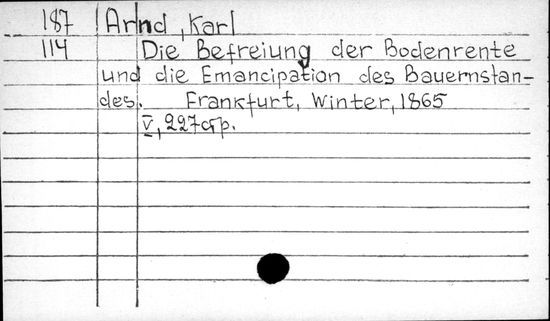 187 Arnd, Karl
114 Die Befreiung der Bodenrente
und die Emancipation des Bauernstan-
des. Frankfurt, Winter, 1865
V, 227 стр.